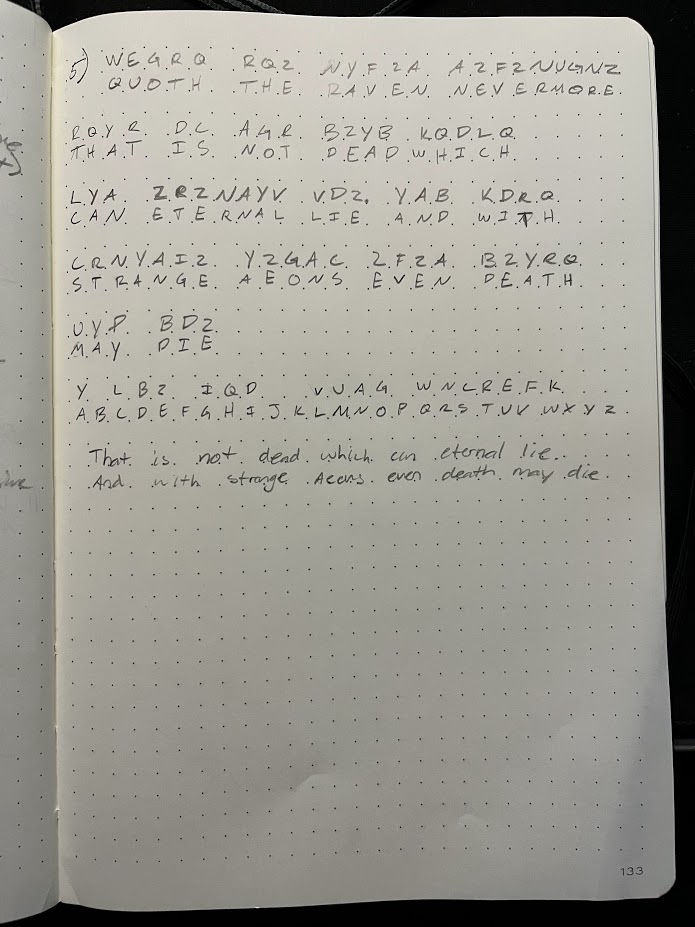 5) WEGRQ RQZ NYFZA AZFZNUGNZ
QUOTH THE RAVEN NEVERMORE
RQYR DC AGR BZYB KQDLQ
THAT IS NOT DEAD WHICH
LYA ZRZNAYV VDZ YAB KDRQ
CAN ETERNAL LIE AND WITH
CRNYAIZ YZGAC ZFZA BZYRQ
STRANGE AEONS EVEN DEATH
UYP BDZ
MAY DIE
Y L B Z I Q D V U A G W N C R E F K
A B C D E F G H I J K L M N O P Q R S T U V W X Y Z
That is not dead which can eternal lie.
And with strange Aeons even death may die.
133